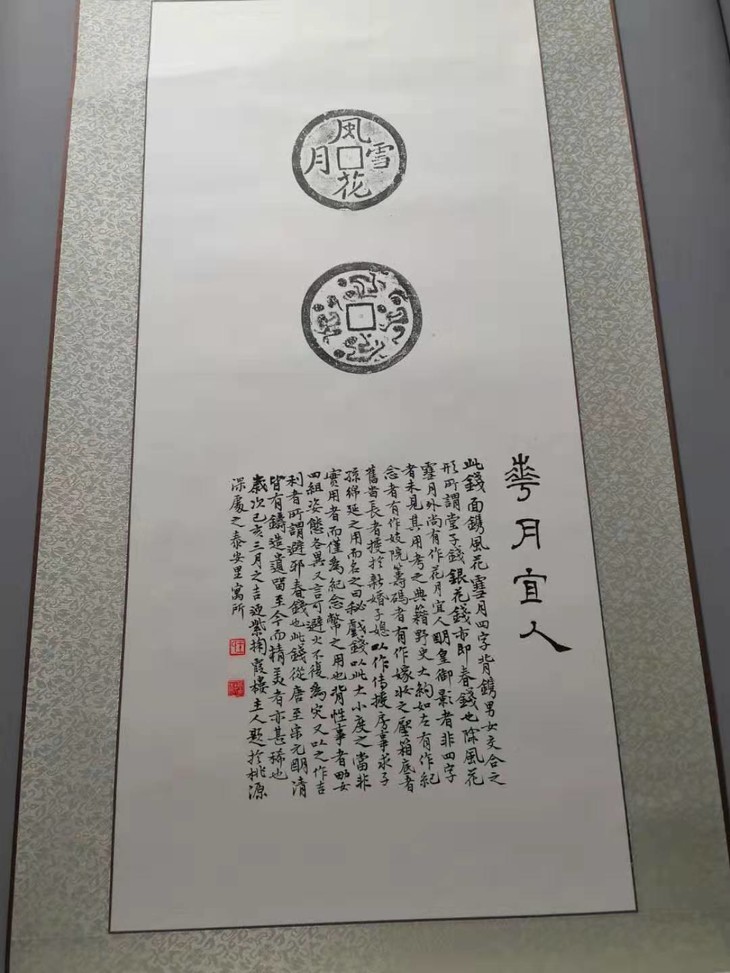 風花雪月
華月宜人
此錢面鐫風花雪月四字背鐫男女交合之
形所謂堂子錢銀花錢亦即春錢也除風花
雪月外尚有作花月宜人明皇御影者非四字
者未見其用考之典籍野史大約如左有作紀
念者有作妓院籌碼者有作嫁妝之壓箱底者
舊當長者授於新婚子媳以作傳授房事求子
孫綿延之用而名之曰秘戲錢以此大小度之當非
實用者而僅為紀念幣之用也背性事者男女
四組姿態各異又言可避火不復為灾又以之作吉
利者所謂避邪春錢也此錢從唐至宋元明清
皆有鑄造遺留至今而精美者亦甚稀也
歲次己亥三月之吉迎紫掬霞樓主人題於桃源
深處之泰安里寓所